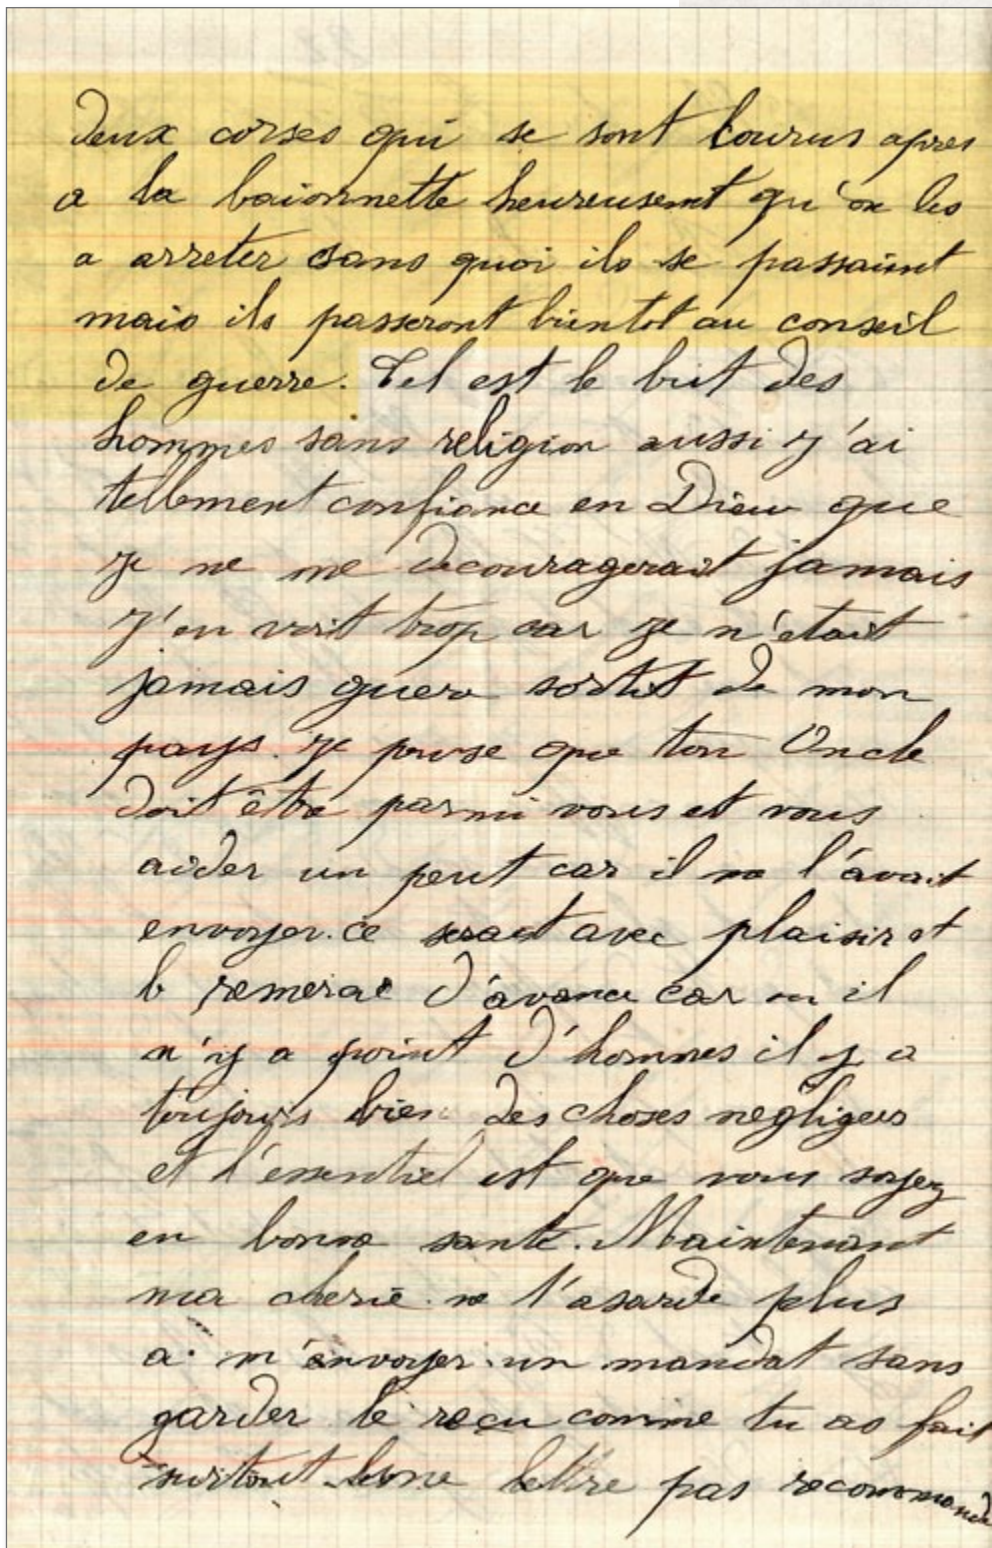 deux corses qui se sont courus apres
a la baionnette heureusemt qu'on les
a arreter sans quoi ils se passaient
mais ils passeront bientot au conseil
de guerre. Tel est le but des
hommes sans religion aussi j'ai
tellement confiance en Dieu que
je ne me decouragerait jamais
j'en voit trop car je n'etait
jamais guere sortit de mon
pays. je pense que ton Oncle
doit être parmi vous et vous
aider un peut car il me l'avait
envoyer. ce serait avec plaisir et
le d'avance car ou il
n'y a point d'hommes il y a
toujours bien des choses negligees
et l'essentiel est que vous soyez
en bonne santé. Maintenant
ma cherie ne t'asarde plus
a m'envoyer un mandat sans
garder le reçu comme tu as fait
surtout lettre pas recommandé